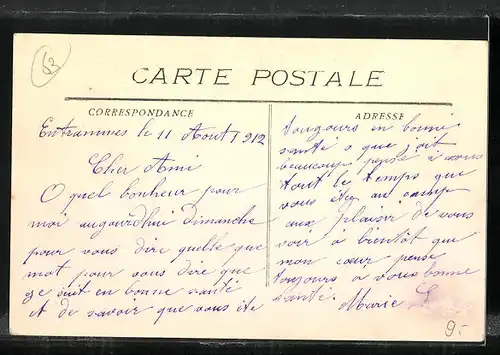 53
CARTE POSTALE
CORRESPONDANCE
Entrammes le 11 Aout 1912
Cher Ami
O quel bonheur pour
moi aujourd'hui dimanche
pour vous dire quelque que
mot pour vous dire que
ge suit en bonne santé
et de savoir que vous ete
ADRESSE
tougours en bonne
santé o que j'ait
beaucoup pensé à vous
tout le temps que
vous étez au camp
aux plaisir de vous
voir à bientôt que
mon cœur pense
toujours à vous bonne
santé. Marie L
9.-